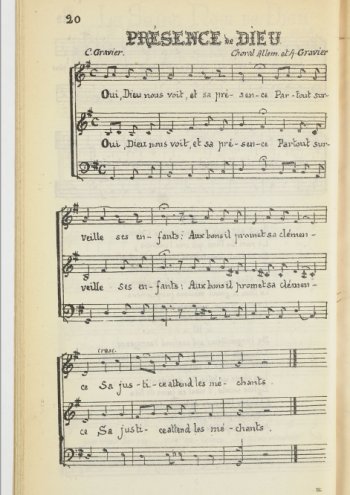 20
PRÉSENCE de DIEU
C. Gravier. Choral Allem. et A. Gravier
Oui, Dieu nous voit, et sa pré- sen-ce Par-tout sur-
Oui, Dieu nous voit, et sa pré- sen-ce Partout sur-
veille ses en- fants: Aux bons il promet sa clémen-
veille ses en- fants: Aux bons il promet sa clémen-
cresc.
ce Sa jus- ti- ce attend les mé- chants.
ce Sa justi- ce attend les mé- chants.